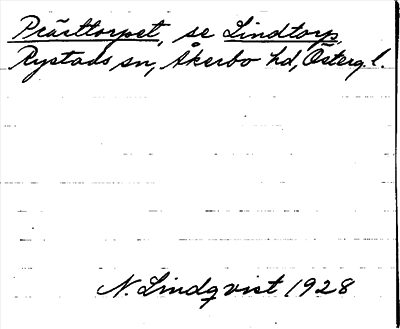 Prärttorpet, se Lindtorp,
Rystads sn, Åkerbo hd, Österg.l.
N. Lindqvist 1928